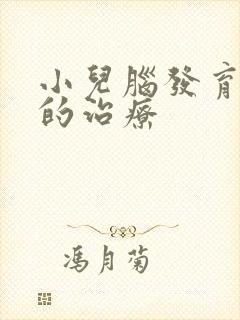 小兒腦發育
的治療
馮月菊